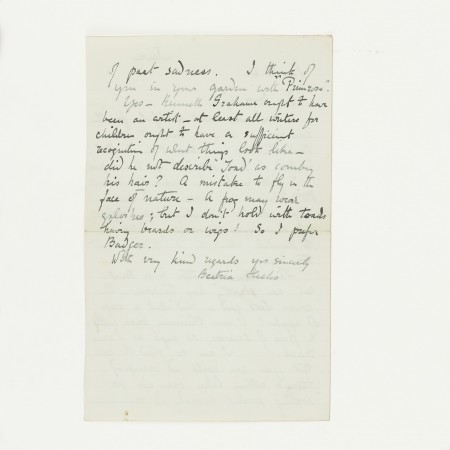 of past sadness. I think of
you in your garden with "Princess".
Yes - Kenneth Grahame ought to have
been an artist - at least all writers for
children ought to have a sufficient
recognition of what things look like -
did he not describe 'Toad' as combing
his hair? A mistake to fly in the
face of nature - A frog may wear
galoshes; but I don't hold with toads
having beards or wigs! So I prefer
Badger.
With very kind regards yrs sincerely
Beatrix Heelis